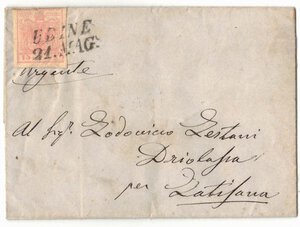 UDINE
21. MAG.
Urgente
Al Sigr. Lodovico Gestani
Driolassa
per Latisana